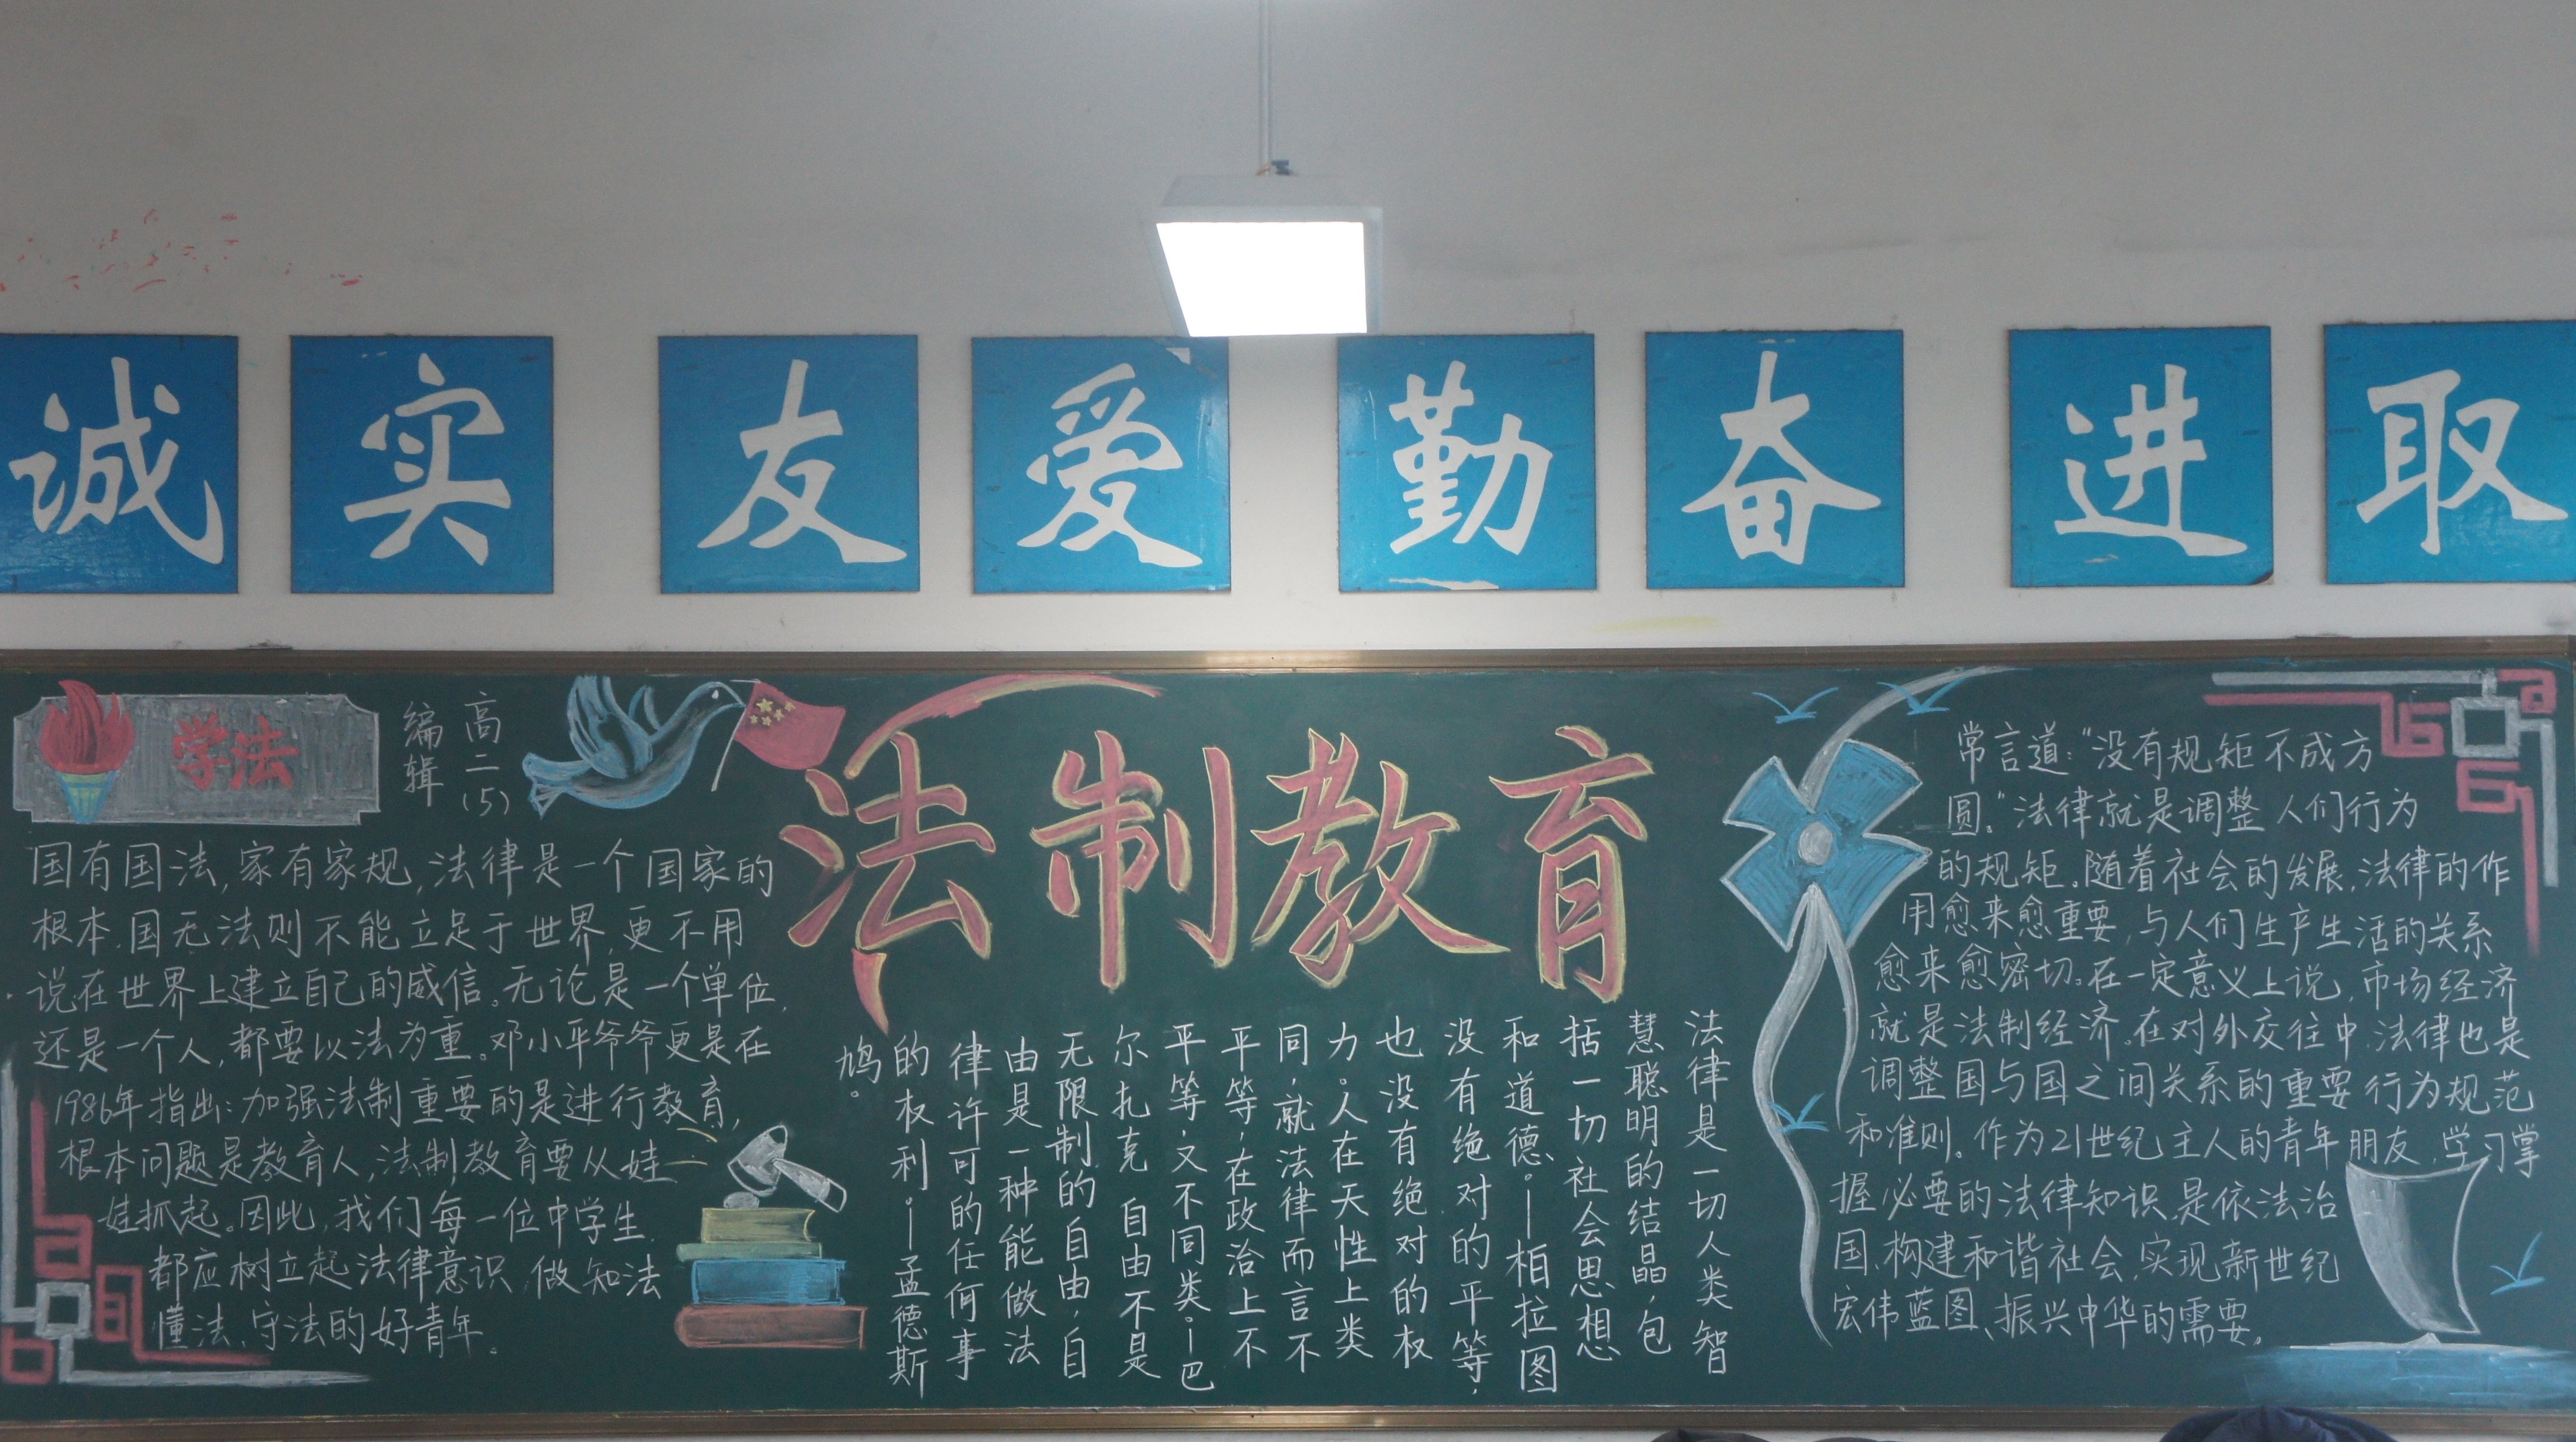 诚实 友爱 勤奋 进取
学法
高二(5)
编辑
法制教育
国有国法,家有家规,法律是一个国家的
根本.国无法则不能立足于世界,更不用
说在世界上建立自己的威信。无论是一个单位,
还是一个人,都要以法为重。邓小平爷爷更是在
1986年指出:加强法制重要的是进行教育,
根本问题是教育人,法制教育要从娃
娃抓起。因此,我们每一位中学生,
都应树立起法律意识,做知法
懂法、守法的好青年。
法律是一切人类智
慧聪明的结晶,包
括一切社会思想
和道德。—柏拉图
没有绝对的平等,
也没有绝对的权
力。人在天性上类
同,就法律而言不
平等,在政治上不
平等,又不同类。—巴
尔扎克 自由不是
无限制的自由,自
由是一种能做法
律许可的任何事
的权利。—孟德斯
鸠。
常言道:“没有规矩不成方
圆。”法律就是调整人们行为
的规矩。随着社会的发展,法律的作
用愈来愈重要,与人们生产生活的关系
愈来愈密切。在一定意义上说,市场经济
就是法制经济。在对外交往中,法律也是
调整国与国之间关系的重要行为规范
和准则。作为21世纪主人的青年朋友,学习掌
握必要的法律知识,是依法治
国、构建和谐社会,实现新世纪
宏伟蓝图、振兴中华的需要。